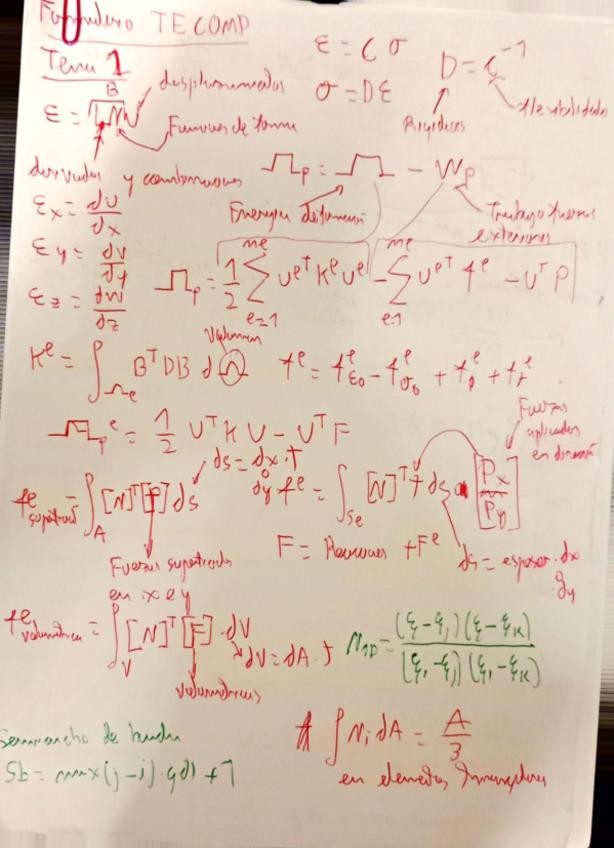 Formulario TECOMP
Tema 1
ε = C σ
σ = D ε
D = C⁻¹
Rigideces
flexibilidades
B
ε = L N u
desplazamientos
Funciones de forma
derivadas y combinaciones
Πp = Π − Wp
Energía deformación
Trabajo fuerzas exteriores
εx = du/dx
εy = dv/dy
εz = dw/dz
Πp = 1/2 Σ(e=1, ne) Ueᵀ Kᵉ Uᵉ − Σ(e=1, ne) Ueᵀ fᵉ − Uᵀ P
Volumen
Kᵉ = ∫Ωe Bᵀ D B dΩ
fᵉ = fᵉε₀ − fᵉσ₀ + fᵉ + fᵉ
Πpᵉ = 1/2 Uᵀ K U − Uᵀ F
Fuerzas aplicadas en
ds = dx · t
dy
fe superficial = ∫A [N]ᵀ [P] ds
fᵉ = ∫Se [N]ᵀ t ds · [Px / Py]
F = Reacciones + Fᵉ
ds = espesor · dx
dy
Fuerzas superficiales
en x e y
fe volumétrica = ∫V [N]ᵀ [F] · dV
dV = dA · t
volumétricas
N1D = (ξ − ξj)(ξ − ξK) / (ξi − ξj)(ξi − ξK)
Semiancho de banda
Sb = max(j − i) · gdl + 1
∫ Ni dA = A/3
en elementos triangulares